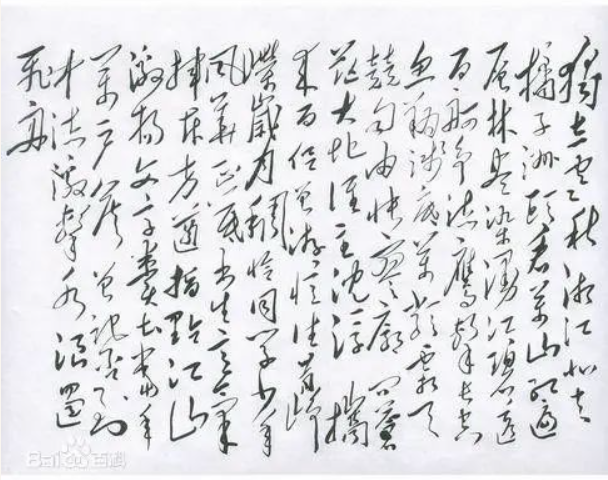 獨立寒秋湘江北去
橘子洲頭看萬山紅遍
层林尽染漫江碧透
百舸争流鹰擊长空
鱼翔浅底萬類霜天
競自由怅寥廓问苍
茫大地谁主沉浮攜
来百侣曾游忆往昔峥
嵘嵗月稠恰同学少年
風華正茂书生意氣
挥斥方遒指點江山
激扬文字粪土当年
萬户侯曾记否到
中流激擊水浪遏
飛舟
Baidu百科